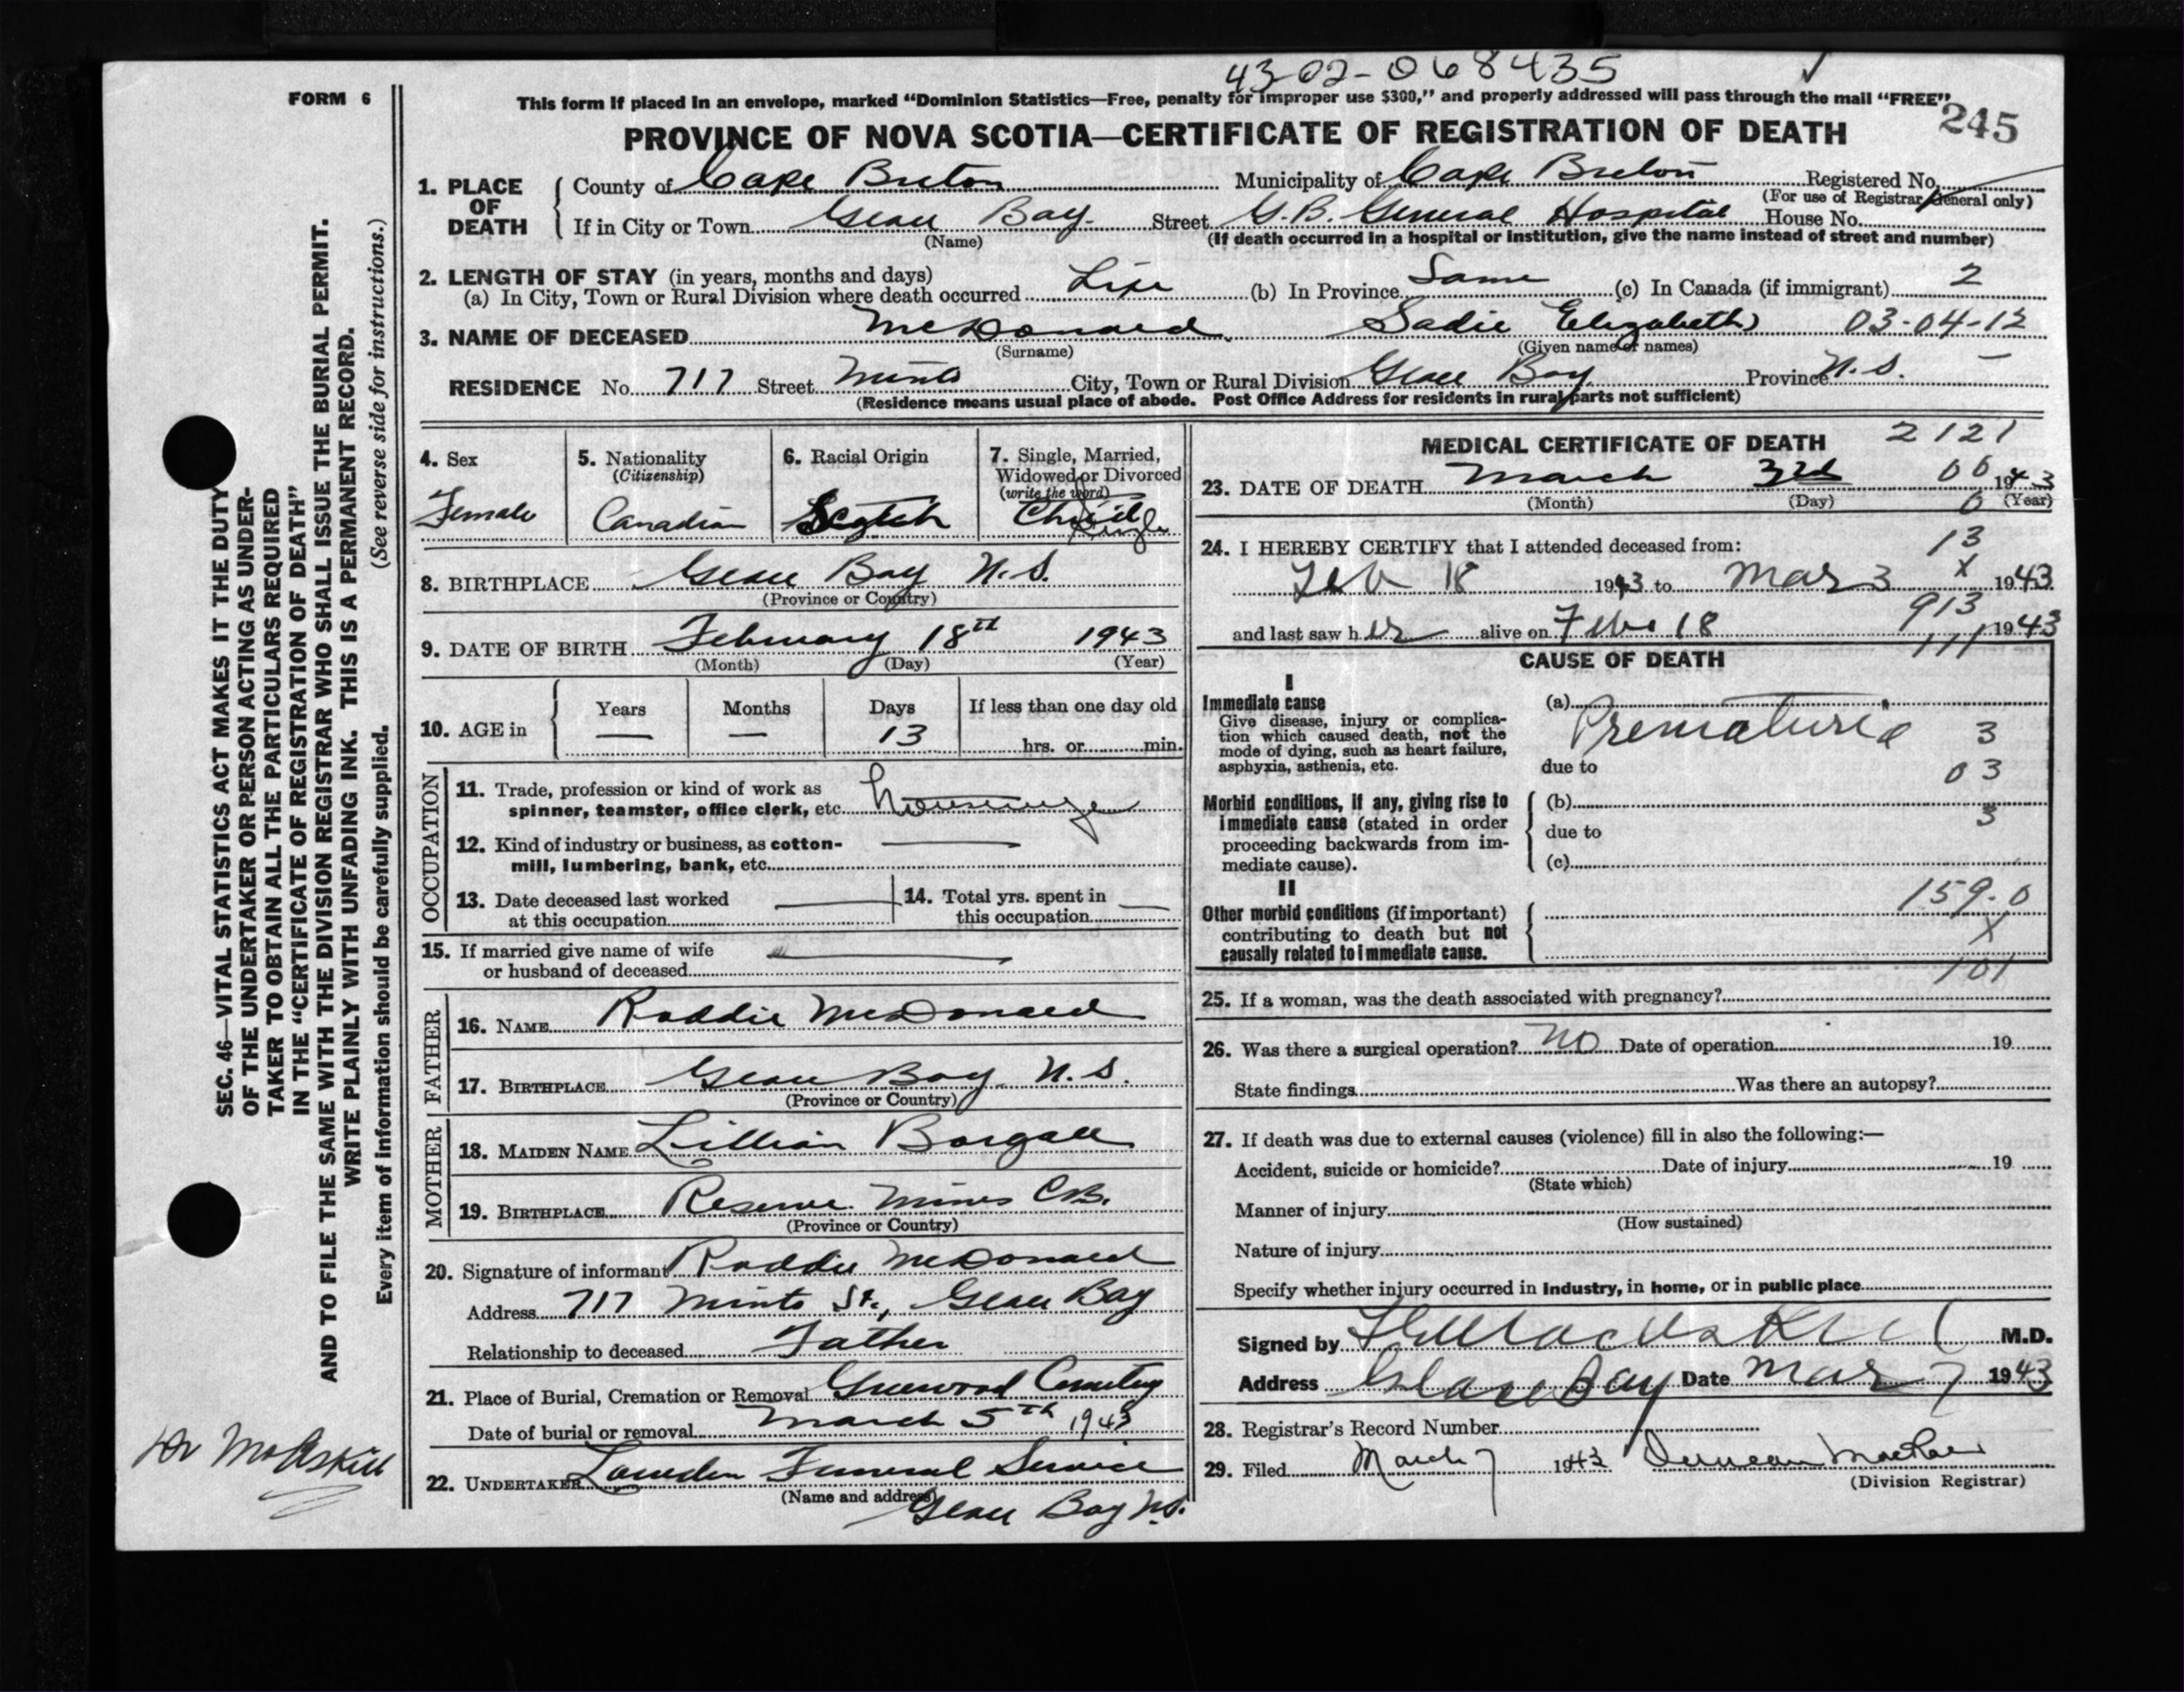 43-02-068435
FORM 6
This form if placed in an envelope, marked “Dominion Statistics—Free, penalty for improper use $300,” and properly addressed will pass through the mail “FREE”
245
PROVINCE OF NOVA SCOTIA—CERTIFICATE OF REGISTRATION OF DEATH
1. PLACE OF DEATH
County of Cape Breton Municipality of Cape Breton Registered No.
(For use of Registrar General only)
If in City or Town Glace Bay. Street G.B. General Hospital House No.
(Name) (If death occurred in a hospital or institution, give the name instead of street and number)
2. LENGTH OF STAY (in years, months and days)
(a) In City, Town or Rural Division where death occurred Life (b) In Province Same (c) In Canada (if immigrant) 2
3. NAME OF DECEASED McDonald Sadie Elizabeth 03-04-12
(Surname) (Given name or names)
RESIDENCE No. 717 Street Minto City, Town or Rural Division Glace Bay Province N.S. —
(Residence means usual place of abode. Post Office Address for residents in rural parts not sufficient)
4. Sex
Female
5. Nationality
(Citizenship)
Canadian
6. Racial Origin
Scotch
7. Single, Married,
Widowed or Divorced
(write the word)
Child
Single
8. BIRTHPLACE Glace Bay N.S.
(Province or Country)
9. DATE OF BIRTH February 18th 1943
(Month) (Day) (Year)
10. AGE in Years — Months — Days 13 If less than one day old
hrs. or min.
OCCUPATION
11. Trade, profession or kind of work as
spinner, teamster, office clerk, etc.
12. Kind of industry or business, as cotton-
mill, lumbering, bank, etc.
13. Date deceased last worked
at this occupation
14. Total yrs. spent in
this occupation
15. If married give name of wife
or husband of deceased
FATHER
16. NAME Roddie McDonald
17. BIRTHPLACE Glace Bay N.S.
(Province or Country)
MOTHER
18. MAIDEN NAME Lillian
19. BIRTHPLACE Reserve Mines C.B.
(Province or Country)
20. Signature of informant Roddie McDonald
Address 717 Minto St., Glace Bay
Relationship to deceased Father
21. Place of Burial, Cremation or Removal Greenwood Cemetery
Date of burial or removal March 5th 1943
22. UNDERTAKER Funeral Service
(Name and address)
Glace Bay N.S.
MEDICAL CERTIFICATE OF DEATH 2121
23. DATE OF DEATH March 3rd 06 1943
(Month) (Day) 0 (Year)
24. I HEREBY CERTIFY that I attended deceased from: 13
Feb 18 1943 to Mar 3 X 1943
913
and last saw her alive on Feb 18 1943
111
CAUSE OF DEATH
I
Immediate cause
Give disease, injury or complica-
tion which caused death, not the
mode of dying, such as heart failure,
asphyxia, asthenia, etc.
(a)
Premature 3
due to
03
Morbid conditions, if any, giving rise to
immediate cause (stated in order
proceeding backwards from im-
mediate cause).
(b)
3
due to
(c)
II
Other morbid conditions (if important)
contributing to death but not
causally related to immediate cause.
159.0
X
101
25. If a woman, was the death associated with pregnancy?
26. Was there a surgical operation? No Date of operation 19
State findings Was there an autopsy?
27. If death was due to external causes (violence) fill in also the following:—
Accident, suicide or homicide? Date of injury 19
(State which)
Manner of injury
(How sustained)
Nature of injury
Specify whether injury occurred in industry, in home, or in public place
Signed by M.D.
Address Glace Bay Date Mar 7 1943
28. Registrar's Record Number
29. Filed March 7 1943 Duncan
(Division Registrar)
SEC. 46—VITAL STATISTICS ACT MAKES IT THE DUTY
OF THE UNDERTAKER OR PERSON ACTING AS UNDER-
TAKER TO OBTAIN ALL THE PARTICULARS REQUIRED
IN THE “CERTIFICATE OF REGISTRATION OF DEATH”
AND TO FILE THE SAME WITH THE DIVISION REGISTRAR WHO SHALL ISSUE THE BURIAL PERMIT.
WRITE PLAINLY WITH UNFADING INK. THIS IS A PERMANENT RECORD.
(See reverse side for instructions.)
Every item of information should be carefully supplied.
Dr McAskill